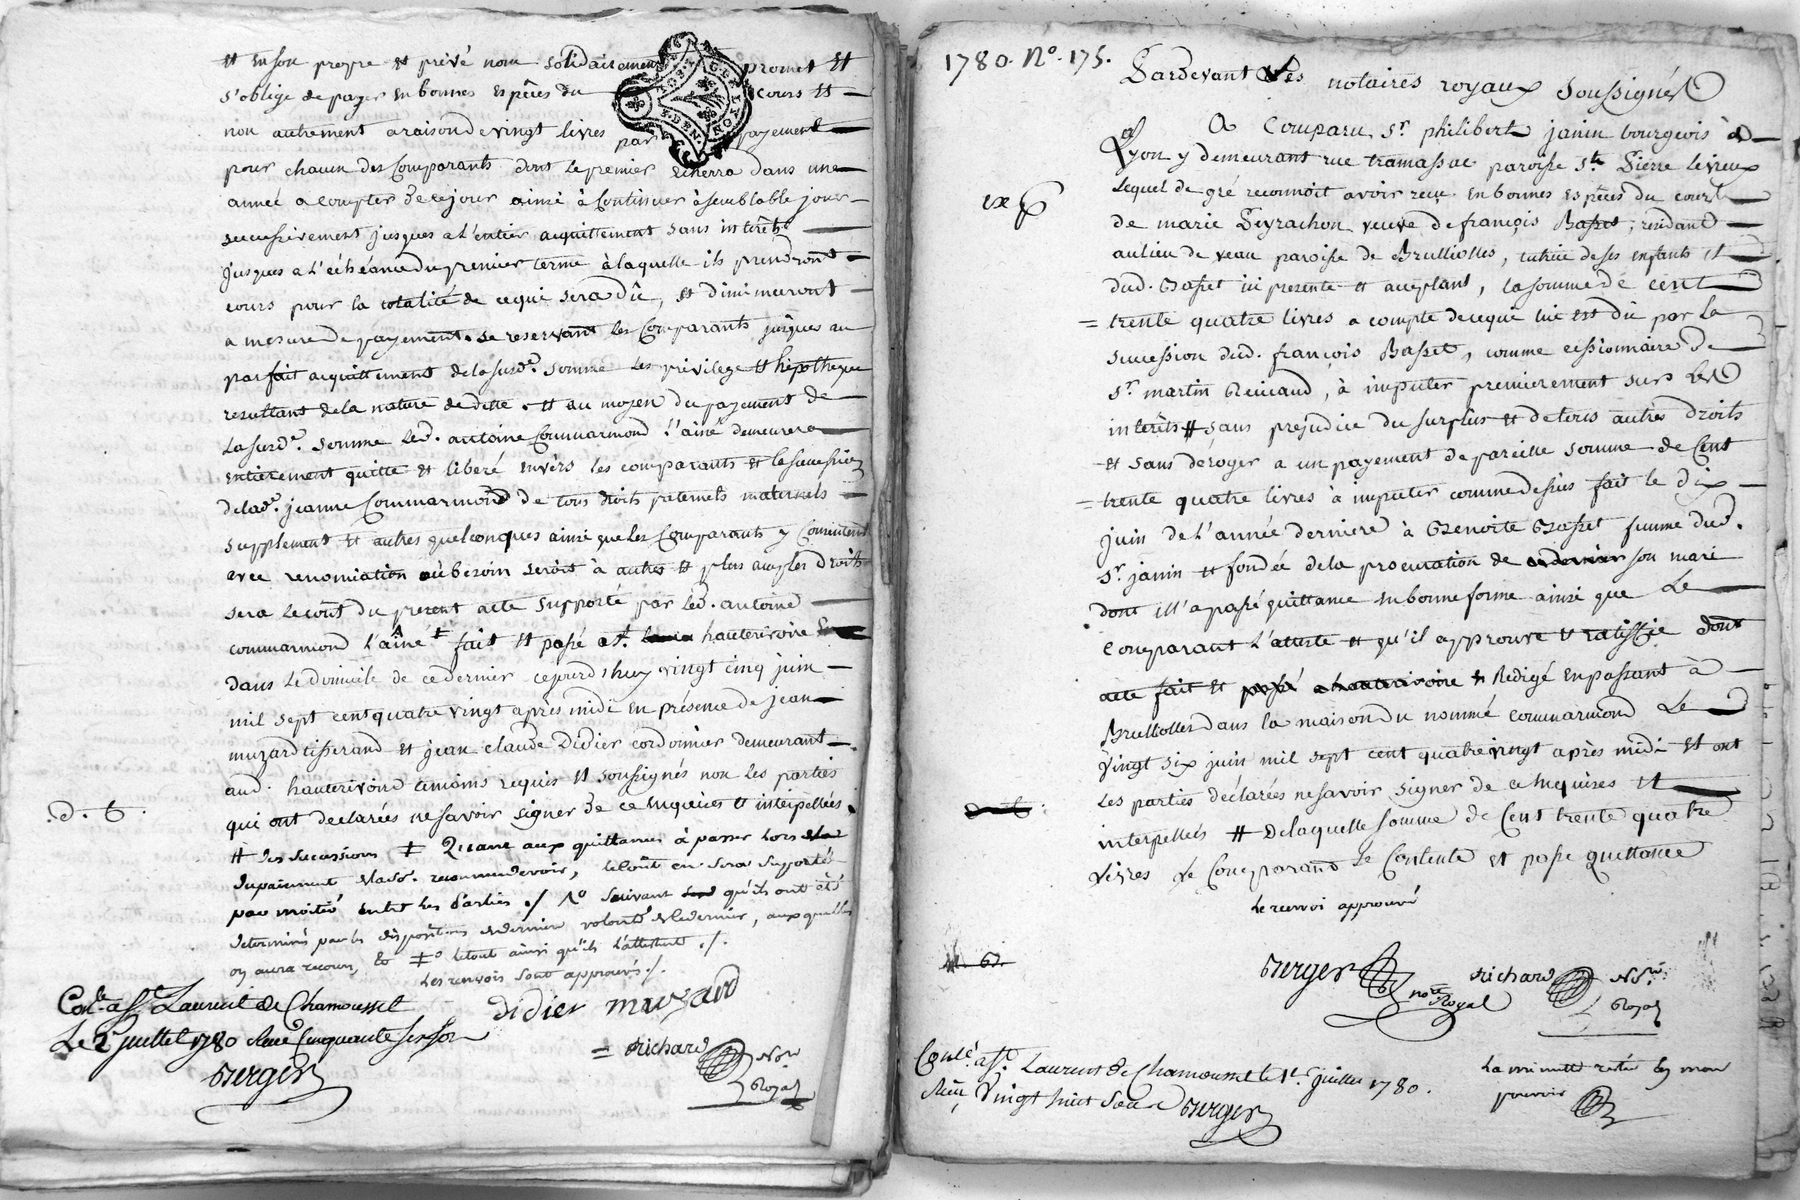 et en son propre et privé nom solidairement promet et
s'oblige de payer en bonnes espèces du cours et
non autrement a raison de vingt livres par payement
GEN. DE LYON
pour chacun des Comparants dont le premier echerra dans une
année a compter de ce jour ainsi à Continuer à semblable jour
successivement jusques a l'entier acquittement sans interêts
jusques a l'échéance du premier terme à laquelle ils prendront
cours pour la totalité de ce qui sera dû, et diminueront
a mesure de payement. se reservant les Comparants jusques au
parfait acquittement de la susd.e somme les privilege et hepotheque
resultant de la nature de dette. et au moyen du payement de
la susd.e somme led. antoine Commarmond l'ainé demeurera
entierement quitte et liberé envers les comparants et la succession
de lad.e jeanne Commarmond de tous droits paternels maternels
supplement et autres quelconques ainsi que les Comparants y Consentent
avec renonciation au besoin seroit à autres et plus amples droits
sera le cout du present acte supporté par led. antoine
commarmond l'ainé ‡ fait et passé a st. hauterivoire
dans le domicile de ce dernier cejourd'huy vingt cinq juin
mil sept cent quatre vingt après midi en présence de jean
muzard tisserand et jean claude Didier cordonnier demeurant
aud. hauterivoire temoins requis et soussignés non les parties
qui ont declarées ne savoir signer de ce enquises et interpellées.
.d. t.
# des successions ‡ Quant aux quittances à passer lors
du paiement, le cout en sera supporté
par moitié entre les Parties ./ N° suivant qu'ils ont été
determinés par les dispositions de derniere volonté de ce dernier, aux quelles
on aura recours, ‡° le tout ainsi qu'ils l'attestent ./.
Les renvois sont approuvés ./.
didier muzard
Con.lé a st. Laurent de Chamousset
Le 2 juillet 1780 Reçu Cinquante six sols
Berger
= Richard No.re Royal
1780. N°. 175.
Pardevant Les notaires royaux soussignés
A Comparu s.r philibert janin bourgeois à
Lyon y demeurant rue tramassac paroisse st. Pierre le vieux
ex
Lequel de gré reconnoit avoir reçu en bonnes espèces du cours
de marie Peyrachon veuve de françois Basset, residant
au lieu de veau paroisse de Brulliolles, tutrice de ses enfants et
dud. Basset ici presente et acceptant, la somme de cent
= trente quatre livres a compte de ce qui lui est dû par la
succession dud. françois Basset, comme cessionnaire de
s.r martin, à imputer premierement sur les
interêts # sans prejudice du surplus et de tous autres droits
et sans deroger a un payement de pareille somme de Cent
= trente quatre livres à imputer comme dessus fait le dix
juin de l'année derniere à Benoite Basset femme dud.
s.r janin et fondée de la procuration de son mari
dont il l'a passé quittance en bonne forme ainsi que Le
Comparant l'atteste et qu'il approuve et ratiffie dont
acte fait et passé a hauterivoire et Redigé en passant à
Brulliolles dans la maison du nommé Commarmond Le
vingt six juin mil sept cent quatre vingt après midi et ont
les parties déclarées ne savoir signer de ce enquises et
interpellées # de laquelle somme de Cent trente quatre
livres le Comparant se Contente et passe quittance
le renvoi approuvé
Berger no.re Royal
Richard No.re Royal
Con.lé a st. Laurent de Chamousset le 1.er juillet 1780.
Reçu Vingt huit sols Berger
La minute restée en mon
pouvoir